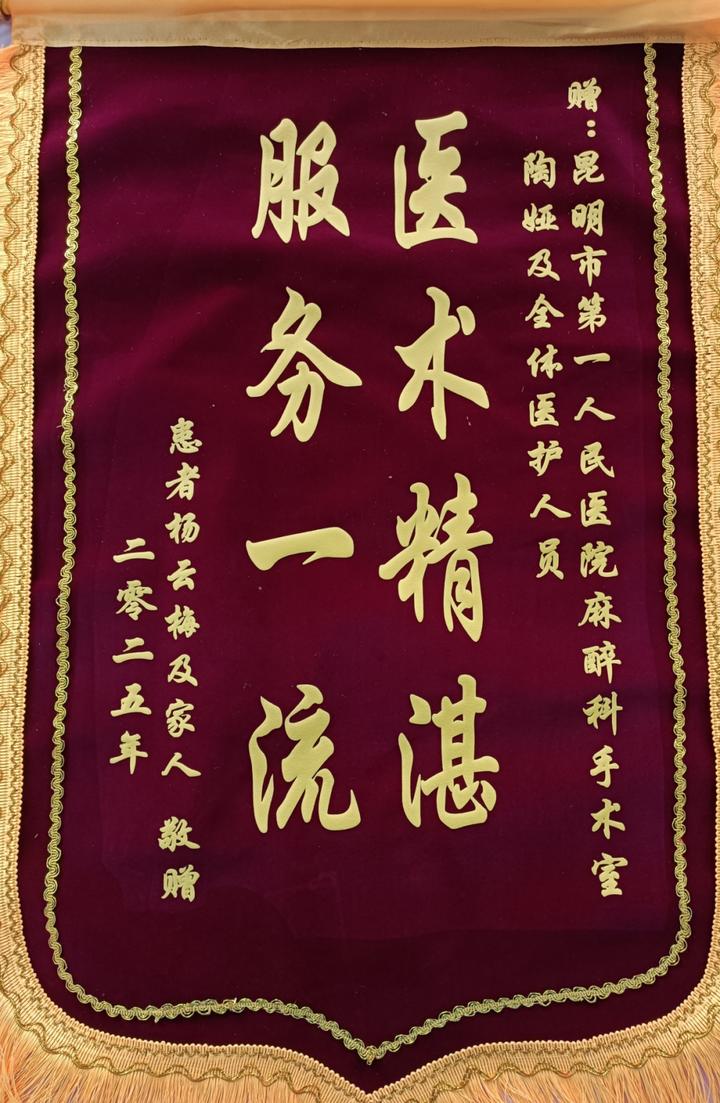 赠：昆明市第一人民医院麻醉科手术室
陶娅及全体医护人员
医术精湛
服务一流
患者杨云梅及家人 敬赠
二零二五年